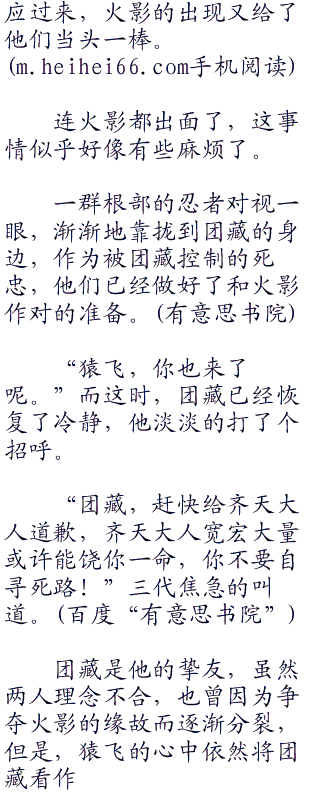 应过来，火影的出现又给了
他们当头一棒。
(m.heihei66.com手机阅读)
连火影都出面了，这事
情似乎好像有些麻烦了。
一群根部的忍者对视一
眼，渐渐地靠拢到团藏的身
边，作为被团藏控制的死
忠，他们已经做好了和火影
作对的准备。(有意思书院)
“猿飞，你也来了
呢。”而这时，团藏已经恢
复了冷静，他淡淡的打了个
招呼。
“团藏，赶快给齐天大
人道歉，齐天大人宽宏大量
或许能饶你一命，你不要自
寻死路！”三代焦急的叫
道。(百度“有意思书院”)
团藏是他的挚友，虽然
两人理念不合，也曾因为争
夺火影的缘故而逐渐分裂，
但是，猿飞的心中依然将团
藏看作